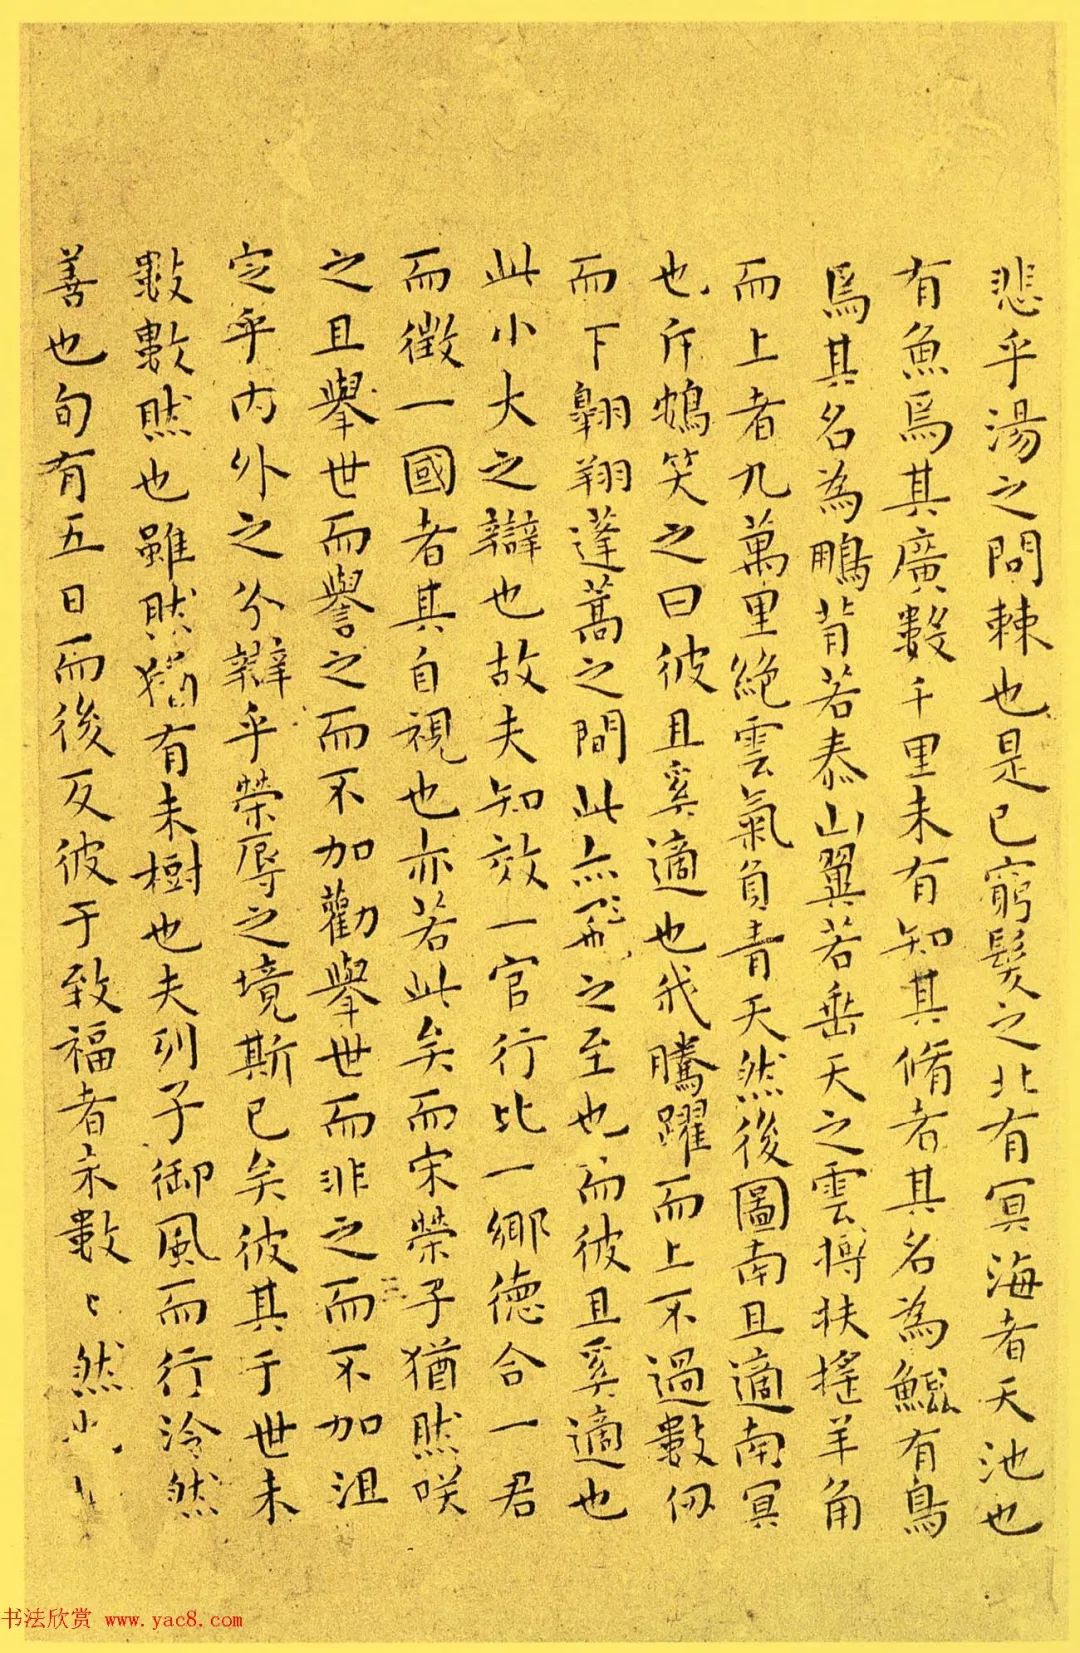 悲乎湯之問棘也是已窮髮之北有冥海者天池也
有魚焉其廣數千里未有知其脩者其名為鯤有鳥
焉其名為鵬背若泰山翼若垂天之雲摶扶搖羊角
而上者九萬里絕雲氣負青天然後圖南且適南冥
也斥鴳笑之曰彼且奚適也我騰躍而上不過數仞
而下翱翔蓬蒿之間此亦飛之至也而彼且奚適也
此小大之辯也故夫知效一官行比一鄉德合一君
而徵一國者其自視也亦若此矣而宋榮子猶然咲
之且舉世而譽之而不加勸舉世而非之而不加沮
定乎内外之分辯乎榮辱之境斯已矣彼其于世未
數數然也雖然猶有未樹也夫列子御風而行泠然
善也旬有五日而後反彼于致福者未數〻然
书法欣赏 www.yac8.com